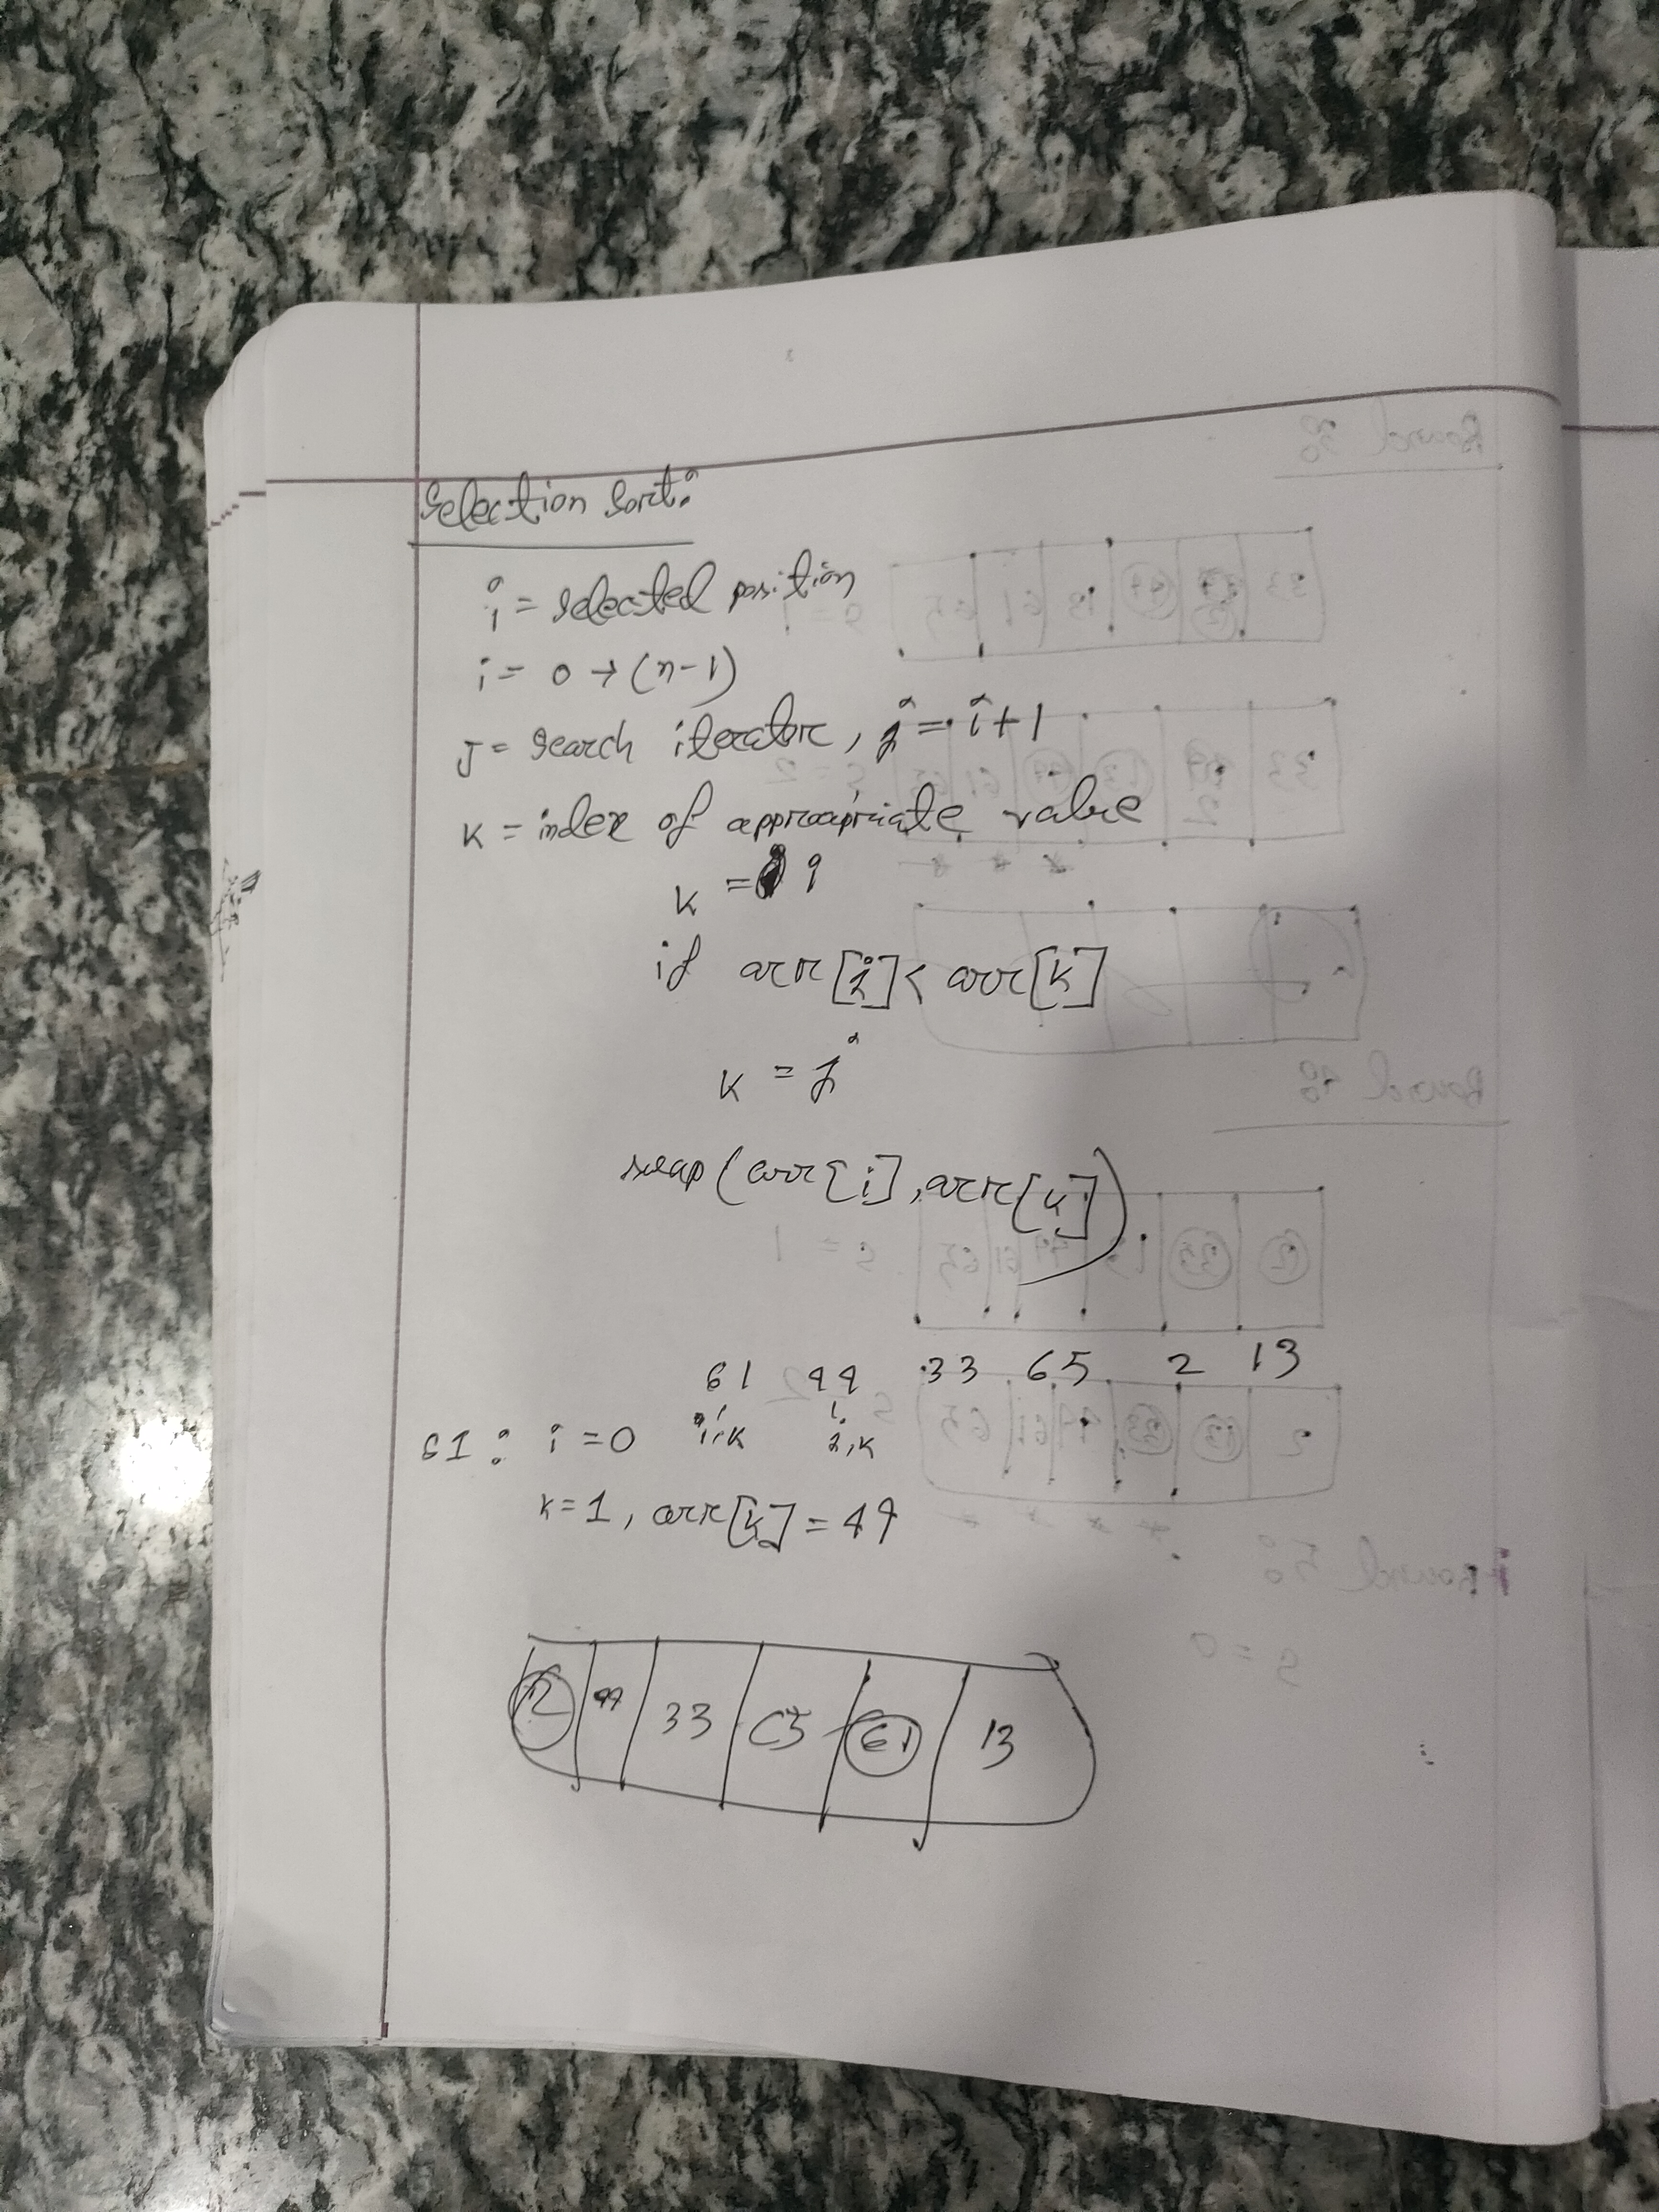 Selection Sort:
i = selected position
i = 0 → (n-1)
J = search iterator, j = i+1
K = index of appropriate value
K = i
if arr[j] < arr[k]
K = j
swap(arr[i], arr[k])
61 49 33 65 2 13
S1: i = 0 i,k j,k
k=1, arr[k] = 49
2 49 33 65 61 13